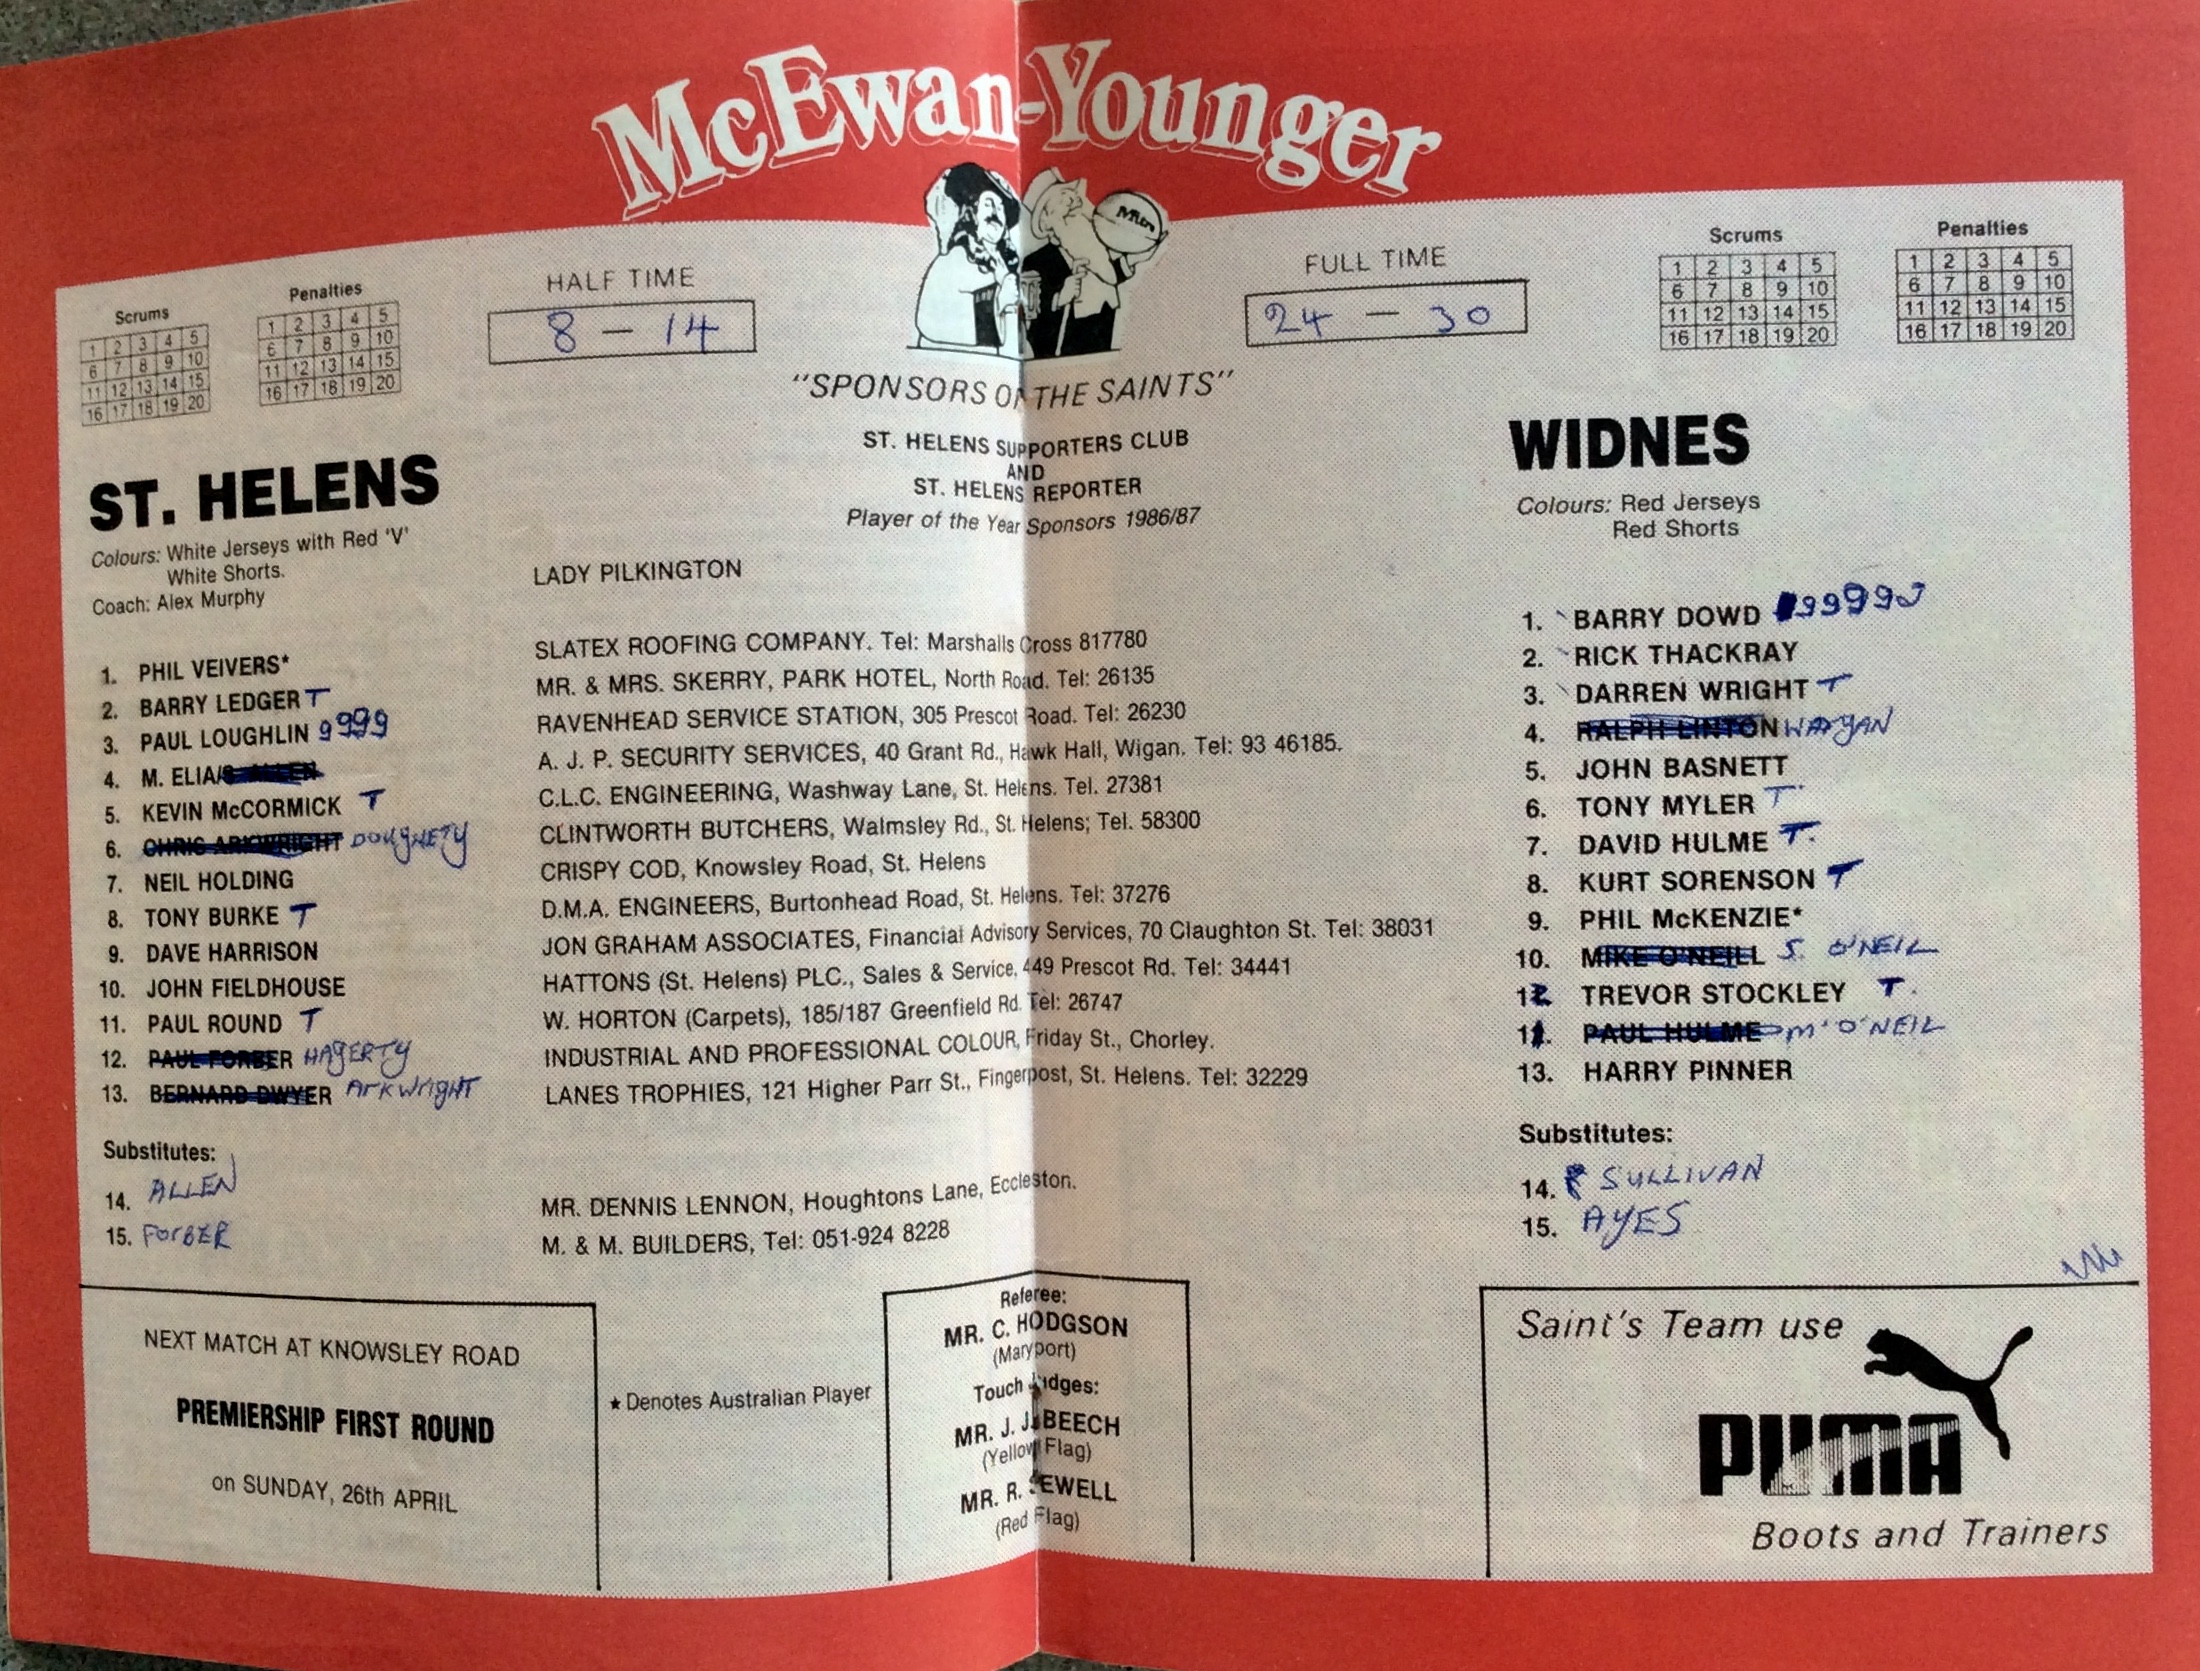 McEwan-Younger
Mitre
Scrums
1 2 3 4 5
6 7 8 9 10
11 12 13 14 15
16 17 18 19 20
Penalties
1 2 3 4 5
6 7 8 9 10
11 12 13 14 15
16 17 18 19 20
HALF TIME
8 — 14
FULL TIME
24 — 30
Scrums
1 2 3 4 5
6 7 8 9 10
11 12 13 14 15
16 17 18 19 20
Penalties
1 2 3 4 5
6 7 8 9 10
11 12 13 14 15
16 17 18 19 20
"SPONSORS OF THE SAINTS"
ST. HELENS SUPPORTERS CLUB
AND
ST. HELENS REPORTER
Player of the Year Sponsors 1986/87
ST. HELENS
Colours: White Jerseys with Red 'V'
White Shorts.
Coach: Alex Murphy
1. PHIL VEIVERS*
2. BARRY LEDGER T
3. PAUL LOUGHLIN 9999
4. M. ELIA/S. ALLEN
5. KEVIN McCORMICK T
6. CHRIS ARKWRIGHT DOUGHETY
7. NEIL HOLDING
8. TONY BURKE T
9. DAVE HARRISON
10. JOHN FIELDHOUSE
11. PAUL ROUND T
12. PAUL FORBER HAGERTY
13. BERNARD DWYER ArKWrigHT
Substitutes:
14. ALLEN
15. ForBER
LADY PILKINGTON
SLATEX ROOFING COMPANY. Tel: Marshalls Cross 817780
MR. & MRS. SKERRY, PARK HOTEL, North Road. Tel: 26135
RAVENHEAD SERVICE STATION, 305 Prescot Road. Tel: 26230
A. J. P. SECURITY SERVICES, 40 Grant Rd., Hawk Hall, Wigan. Tel: 93 46185.
C.L.C. ENGINEERING, Washway Lane, St. Helens. Tel. 27381
CLINTWORTH BUTCHERS, Walmsley Rd., St. Helens; Tel. 58300
CRISPY COD, Knowsley Road, St. Helens
D.M.A. ENGINEERS, Burtonhead Road, St. Helens. Tel: 37276
JON GRAHAM ASSOCIATES, Financial Advisory Services, 70 Claughton St. Tel: 38031
HATTONS (St. Helens) PLC., Sales & Service, 449 Prescot Rd. Tel: 34441
W. HORTON (Carpets), 185/187 Greenfield Rd. Tel: 26747
INDUSTRIAL AND PROFESSIONAL COLOUR, Friday St., Chorley.
LANES TROPHIES, 121 Higher Parr St., Fingerpost, St. Helens. Tel: 32229
MR. DENNIS LENNON, Houghtons Lane, Eccleston.
M. & M. BUILDERS, Tel: 051-924 8228
WIDNES
Colours: Red Jerseys
Red Shorts
1. BARRY DOWD 99999
2. RICK THACKRAY
3. DARREN WRIGHT T
4. RALPH LINTON
5. JOHN BASNETT
6. TONY MYLER T
7. DAVID HULME T
8. KURT SORENSON T
9. PHIL McKENZIE*
10. MIKE O'NEILL S. O'NEIL
12 TREVOR STOCKLEY T
11. PAUL HULME M. O'NEIL
13. HARRY PINNER
Substitutes:
14. SULLIVAN
15. AYES
NEXT MATCH AT KNOWSLEY ROAD
PREMIERSHIP FIRST ROUND
on SUNDAY, 26th APRIL
★ Denotes Australian Player
Referee:
MR. C. HODGSON
(Maryport)
Touch Judges:
MR. J. J. BEECH
(Yellow Flag)
MR. R. SEWELL
(Red Flag)
Saint's Team use
PUMA
Boots and Trainers